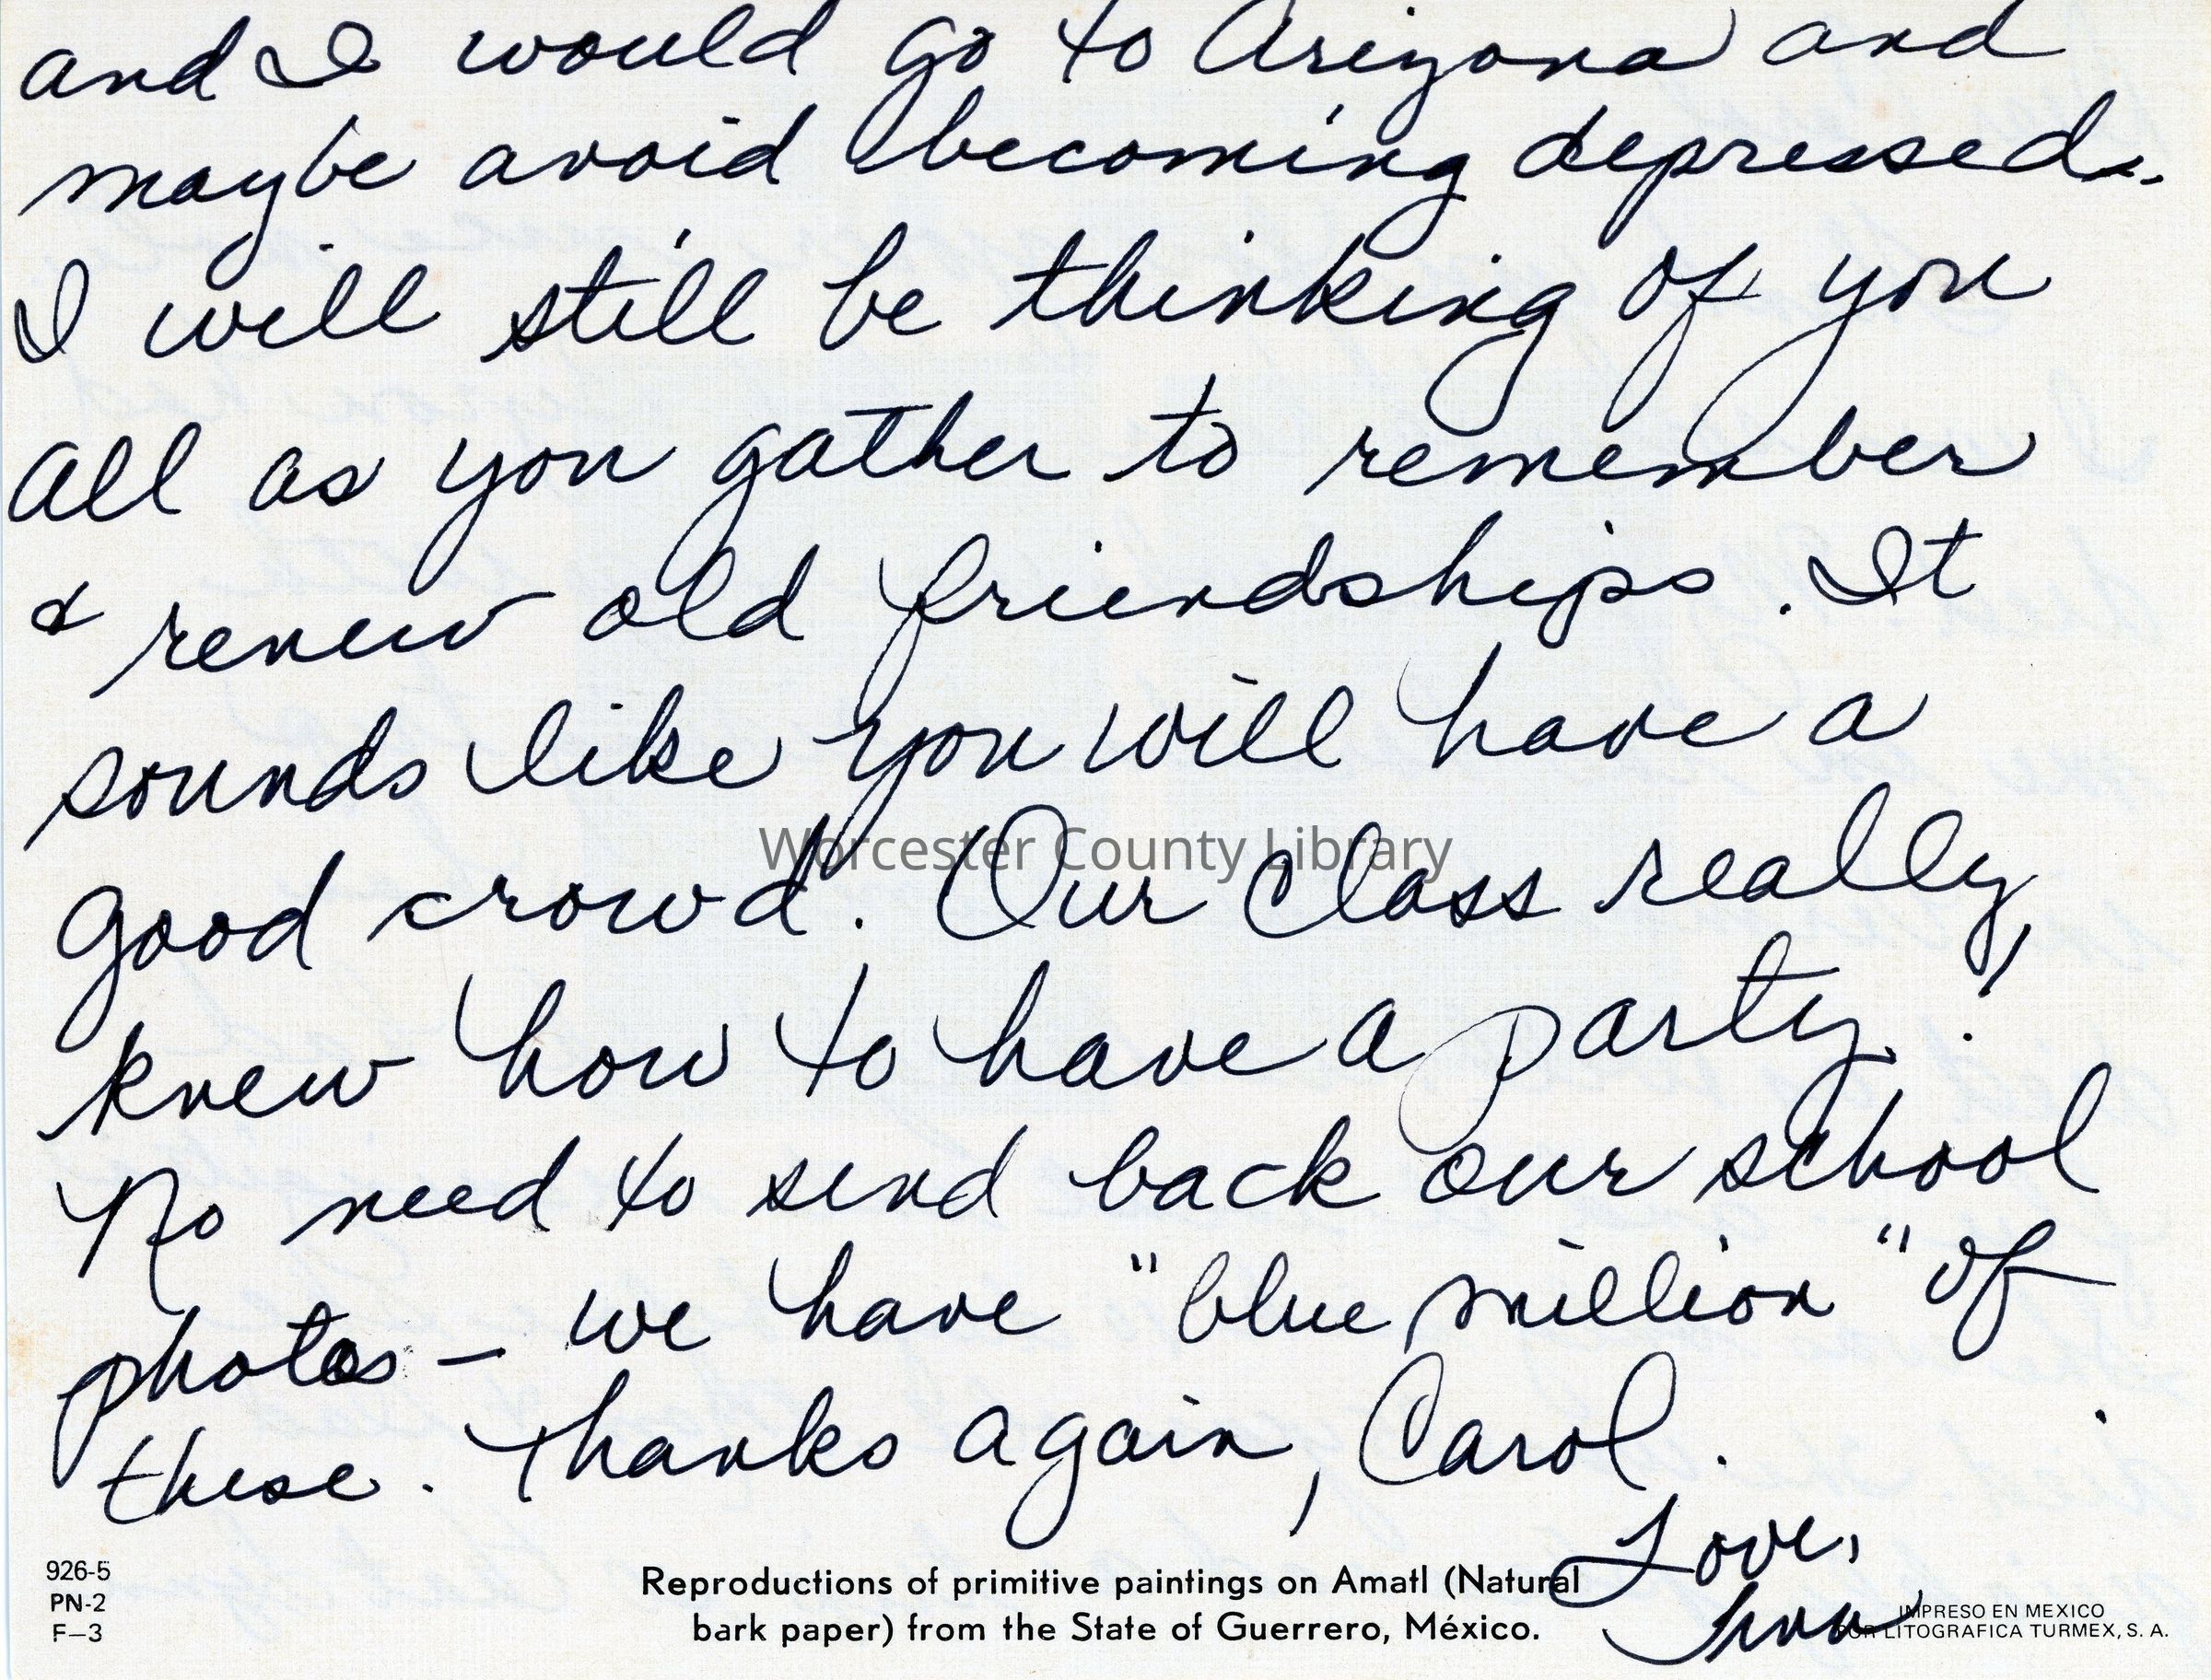 and I would go to Arizona and
maybe avoid becoming depressed..
I will still be thinking of you
all as you gather to remember
& renew old friendships. It
sounds like you will have a
good crowd. Our class really
knew how to have a party!
No need to send back our school
photos – we have "blue million" of
these. Thanks again, Carol.
Love,
Worcester County Library
926-5
PN-2
F–3
Reproductions of primitive paintings on Amatl (Natural
bark paper) from the State of Guerrero, México.
IMPRESO EN MEXICO
POR LITOGRAFICA TURMEX, S. A.